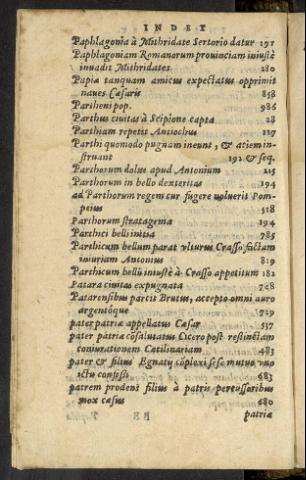 INDEX
Paphlagonia à Mithridate Sertorio datur 191
Paphlagoniam Romanorum prouinciam iniustè
inuadit Mithridates 180
Papia tanquam amicus expectatus opprimit
naues Cæsaris 858
Partheni pop. 986
Parthus ciuitas à Scipione capta 28
Parthiam repetit Antiochus 127
Parthi quomodo pugnam ineunt, & aciem in-
struant 191 & seq.
Parthorum dolus apud Antonium 215
Parthorum in bello dexteritas 194
ad Parthorum regem cur fugere voluerit Pom-
peius 518
Parthorum stratagema 194
Parthici belli initia 785
Parthicum bellum parat vlturus Crasso factam
iniuriam Antonius 819
Parthicum bellũ iniustè à Crasso appetitum 181
Patara ciuitas expugnata 768
Patarensibus parcit Brutus, accepto omni auro
argentóque 719
pater patriæ appellatus Cæsar 537
pater patriæ cõsalutatus Cicero post restinctam
coniurationem Catilinariam 483
pater & filius Egnatij cõplexi sese mutuo vno
ictu confossi 683
patrem prodens filius à patris percussoribus
mox cæsus 680
patriæ